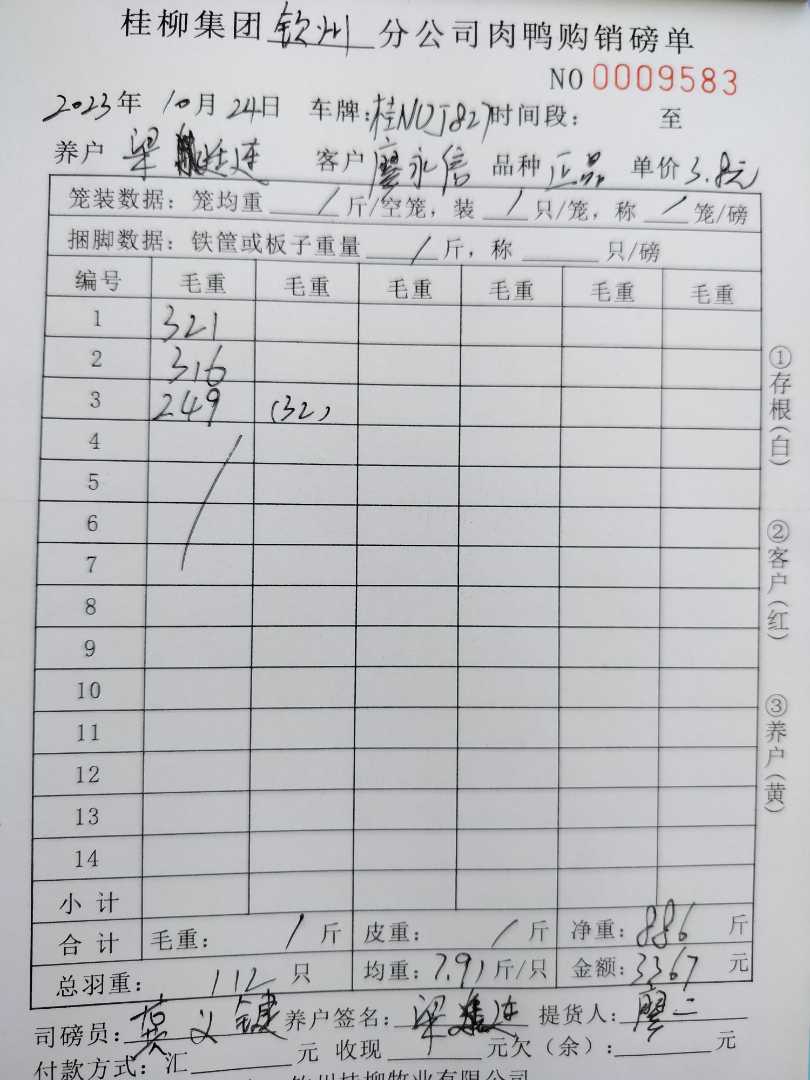 桂柳集团钦州分公司肉鸭购销磅单
NO 0009583
2023年 10月 24日 车牌:桂NOJ827 时间段: 至
养户 梁 连 客户 廖永信 品种 正品 单价 3.8元
笼装数据:笼均重 / 斤/空笼,装 / 只/笼,称 / 笼/磅
捆脚数据:铁筐或板子重量 / 斤,称 只/磅
编号 毛重 毛重 毛重 毛重 毛重 毛重
1 321
2 316
3 249 (32)
4
5
6
7
8
9
10
11
12
13
14
小计
合计 毛重: / 斤 皮重: / 斤 净重:886 斤
总羽重: 112 只 均重:7.91斤/只 金额:3367 元
司磅员: 义 键 养户签名: 梁 连 提货人: 廖二
付款方式:汇 元 收现 元欠(余): 元
钦州桂柳牧业有限公司
①存根(白)
②客户(红)
③养户(黄)